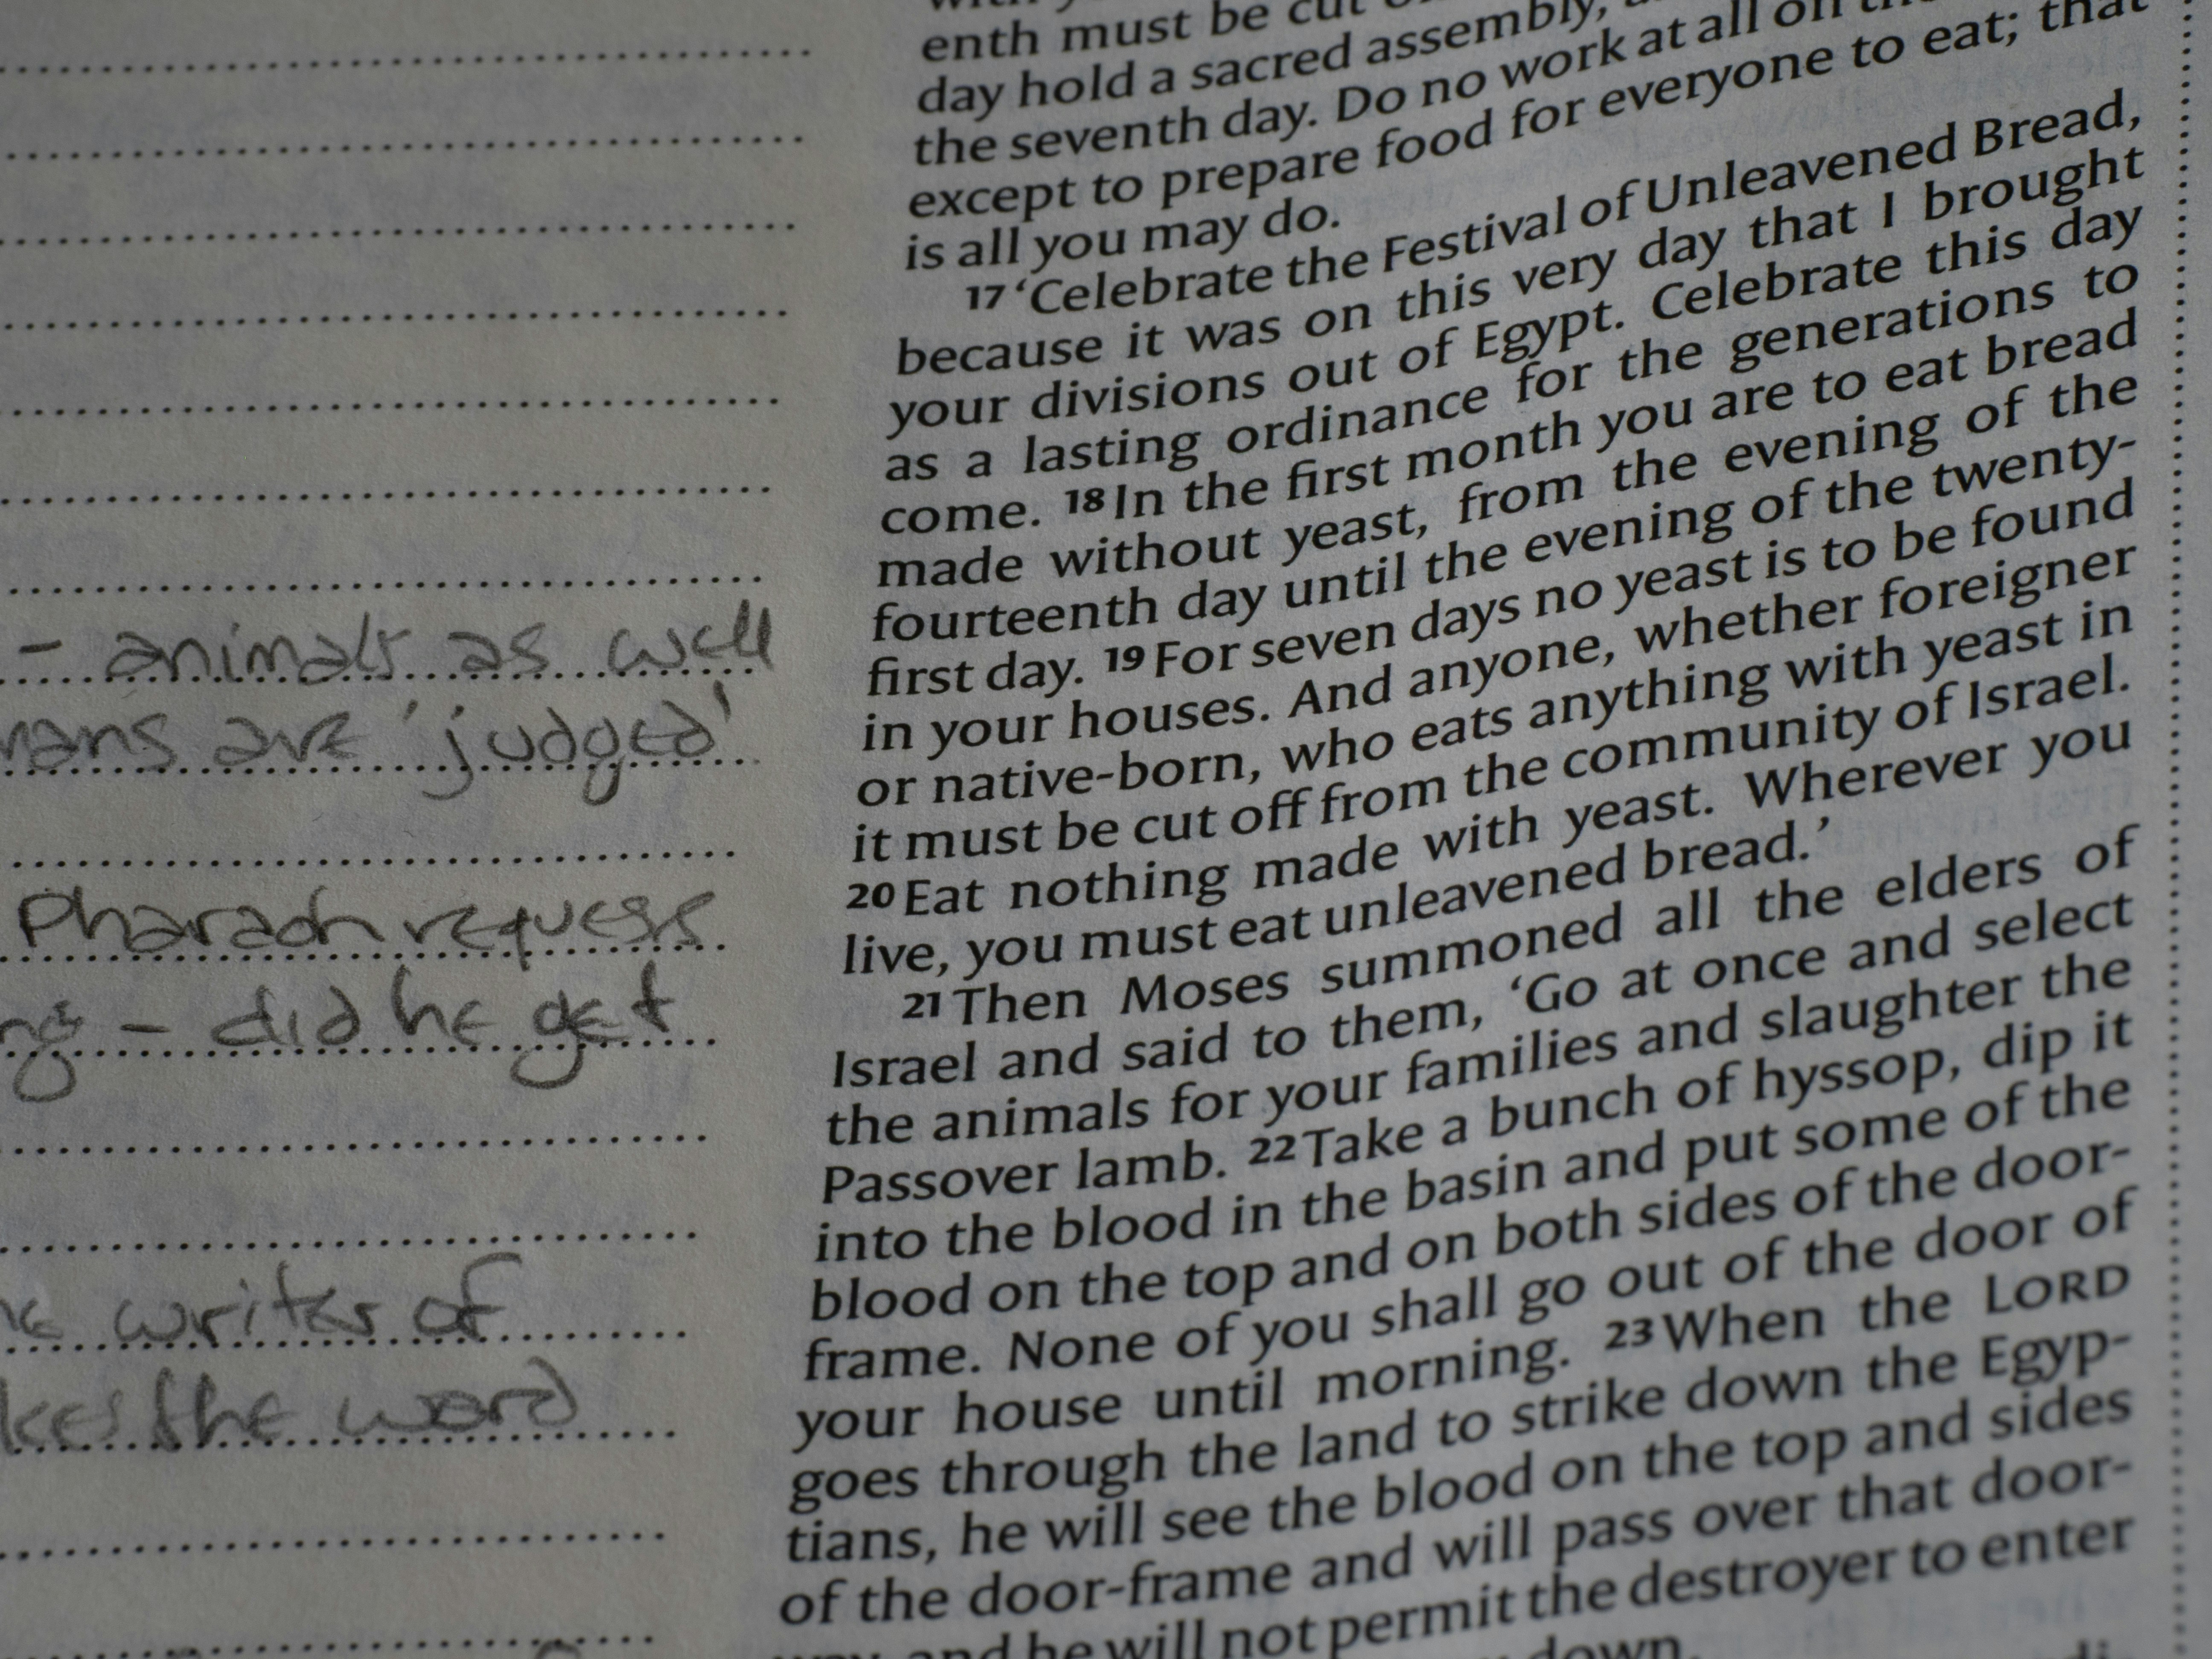 – animals as well
are 'judged'
Pharaoh requess
– did he get
writer of
the word
enth must be cut
day hold a sacred assembly,
the seventh day. Do no work at all on
except to prepare food for everyone to eat; that
is all you may do.
17 'Celebrate the Festival of Unleavened Bread,
because it was on this very day that I brought
your divisions out of Egypt. Celebrate this day
as a lasting ordinance for the generations to
come. 18 In the first month you are to eat bread
made without yeast, from the evening of the
fourteenth day until the evening of the twenty-
first day. 19 For seven days no yeast is to be found
in your houses. And anyone, whether foreigner
or native-born, who eats anything with yeast in
it must be cut off from the community of Israel.
20 Eat nothing made with yeast. Wherever you
live, you must eat unleavened bread.'
21 Then Moses summoned all the elders of
Israel and said to them, 'Go at once and select
the animals for your families and slaughter the
Passover lamb. 22 Take a bunch of hyssop, dip it
into the blood in the basin and put some of the
blood on the top and on both sides of the door-
frame. None of you shall go out of the door of
your house until morning. 23 When the LORD
goes through the land to strike down the Egyp-
tians, he will see the blood on the top and sides
of the door-frame and will pass over that door-
and he will not permit the destroyer to enter
down.